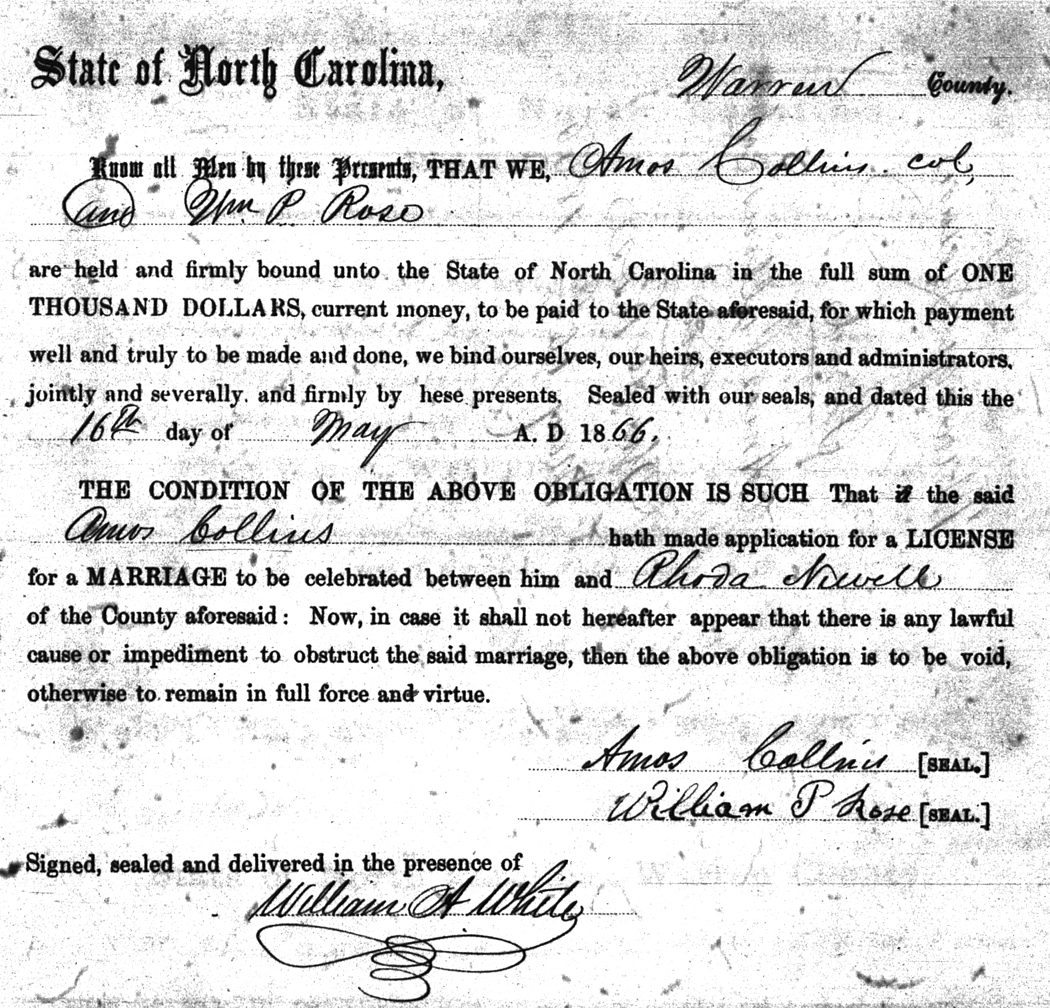 State of North Carolina, Warren County.
Know all Men by these Presents, THAT WE, Amos Collins. col,
and Wm P. Rose
are held and firmly bound unto the State of North Carolina in the full sum of ONE
THOUSAND DOLLARS, current money, to be paid to the State aforesaid, for which payment
well and truly to be made and done, we bind ourselves, our heirs, executors and administrators,
jointly and severally. and firmly by hese presents. Sealed with our seals, and dated this the
16th day of May A. D 1866.
THE CONDITION OF THE ABOVE OBLIGATION IS SUCH That if the said
Amos Collins hath made application for a LICENSE
for a MARRIAGE to be celebrated between him and Rhoda Newell
of the County aforesaid: Now, in case it shall not hereafter appear that there is any lawful
cause or impediment to obstruct the said marriage, then the above obligation is to be void,
otherwise to remain in full force and virtue.
Amos Collins [SEAL.]
William P Rose [SEAL.]
Signed, sealed and delivered in the presence of
William A White